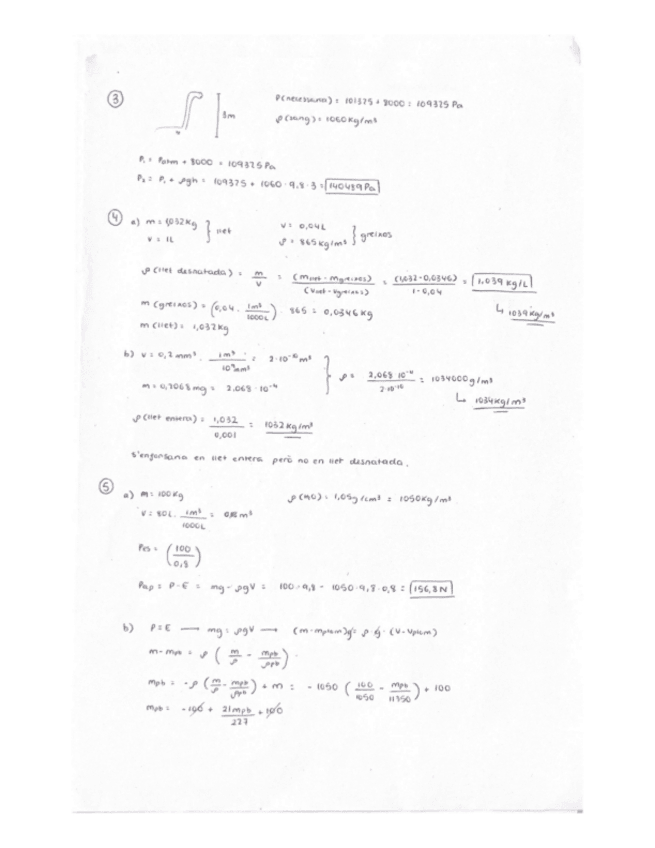 ③
3m
P(necessaria) = 101325 + 8000 = 109325 Pa
ρ(sang) = 1060 Kg/m³
P₁ = Patm + 8000 = 109325 Pa
P₂ = P₁ + ρgh = 109325 + 1060 · 9,8 · 3 = 140489 Pa
④ a) m = 1,032 Kg
V = 1L
} llet
V = 0,04L
ρ = 865 Kg/m³
} greixos
ρ(llet desnatada) = m/V = (mllet - mgreixos)/(Vllet - Vgreixos) = (1,032 - 0,0346)/(1 - 0,04) = 1,039 Kg/L
↳ 1039 Kg/m³
m(greixos) = (0,04 · 1m³/1000L) · 865 = 0,0346 Kg
m(llet) = 1,032 Kg
b) V = 0,2 mm³ · 1m³/10⁹mm³ = 2·10⁻¹⁰ m³
m = 0,2068 mg = 2.068·10⁻⁴
} ρ = 2,068·10⁻⁴/2·10⁻¹⁰ = 1034000 g/m³
↳ 1034 Kg/m³
ρ(llet entera) = 1,032/0,001 = 1032 Kg/m³
s'enfonsaria en llet entera però no en llet desnatada.
⑤
a) m = 100 Kg
ρ(mo) = 1,05g/cm³ = 1050 Kg/m³
V = 80L · 1m³/1000L = m³
Pes = (100/0,8)
Pap = P - E = mg - ρgV = 100 · 9,8 - 1050 · 9,8 · 0,8 = 156,8 N
b) P = E → mg = ρgV → (m - mplom)g = ρ · g · (V - Vplom)
m - mpb = ρ (m/ρ - mpb/ρpb)
mpb = -ρ (m/ρ - mpb/ρpb) + m = -1050 (100/1050 - mpb/11350) + 100
mpb = -100 + 21mpb/227 + 100